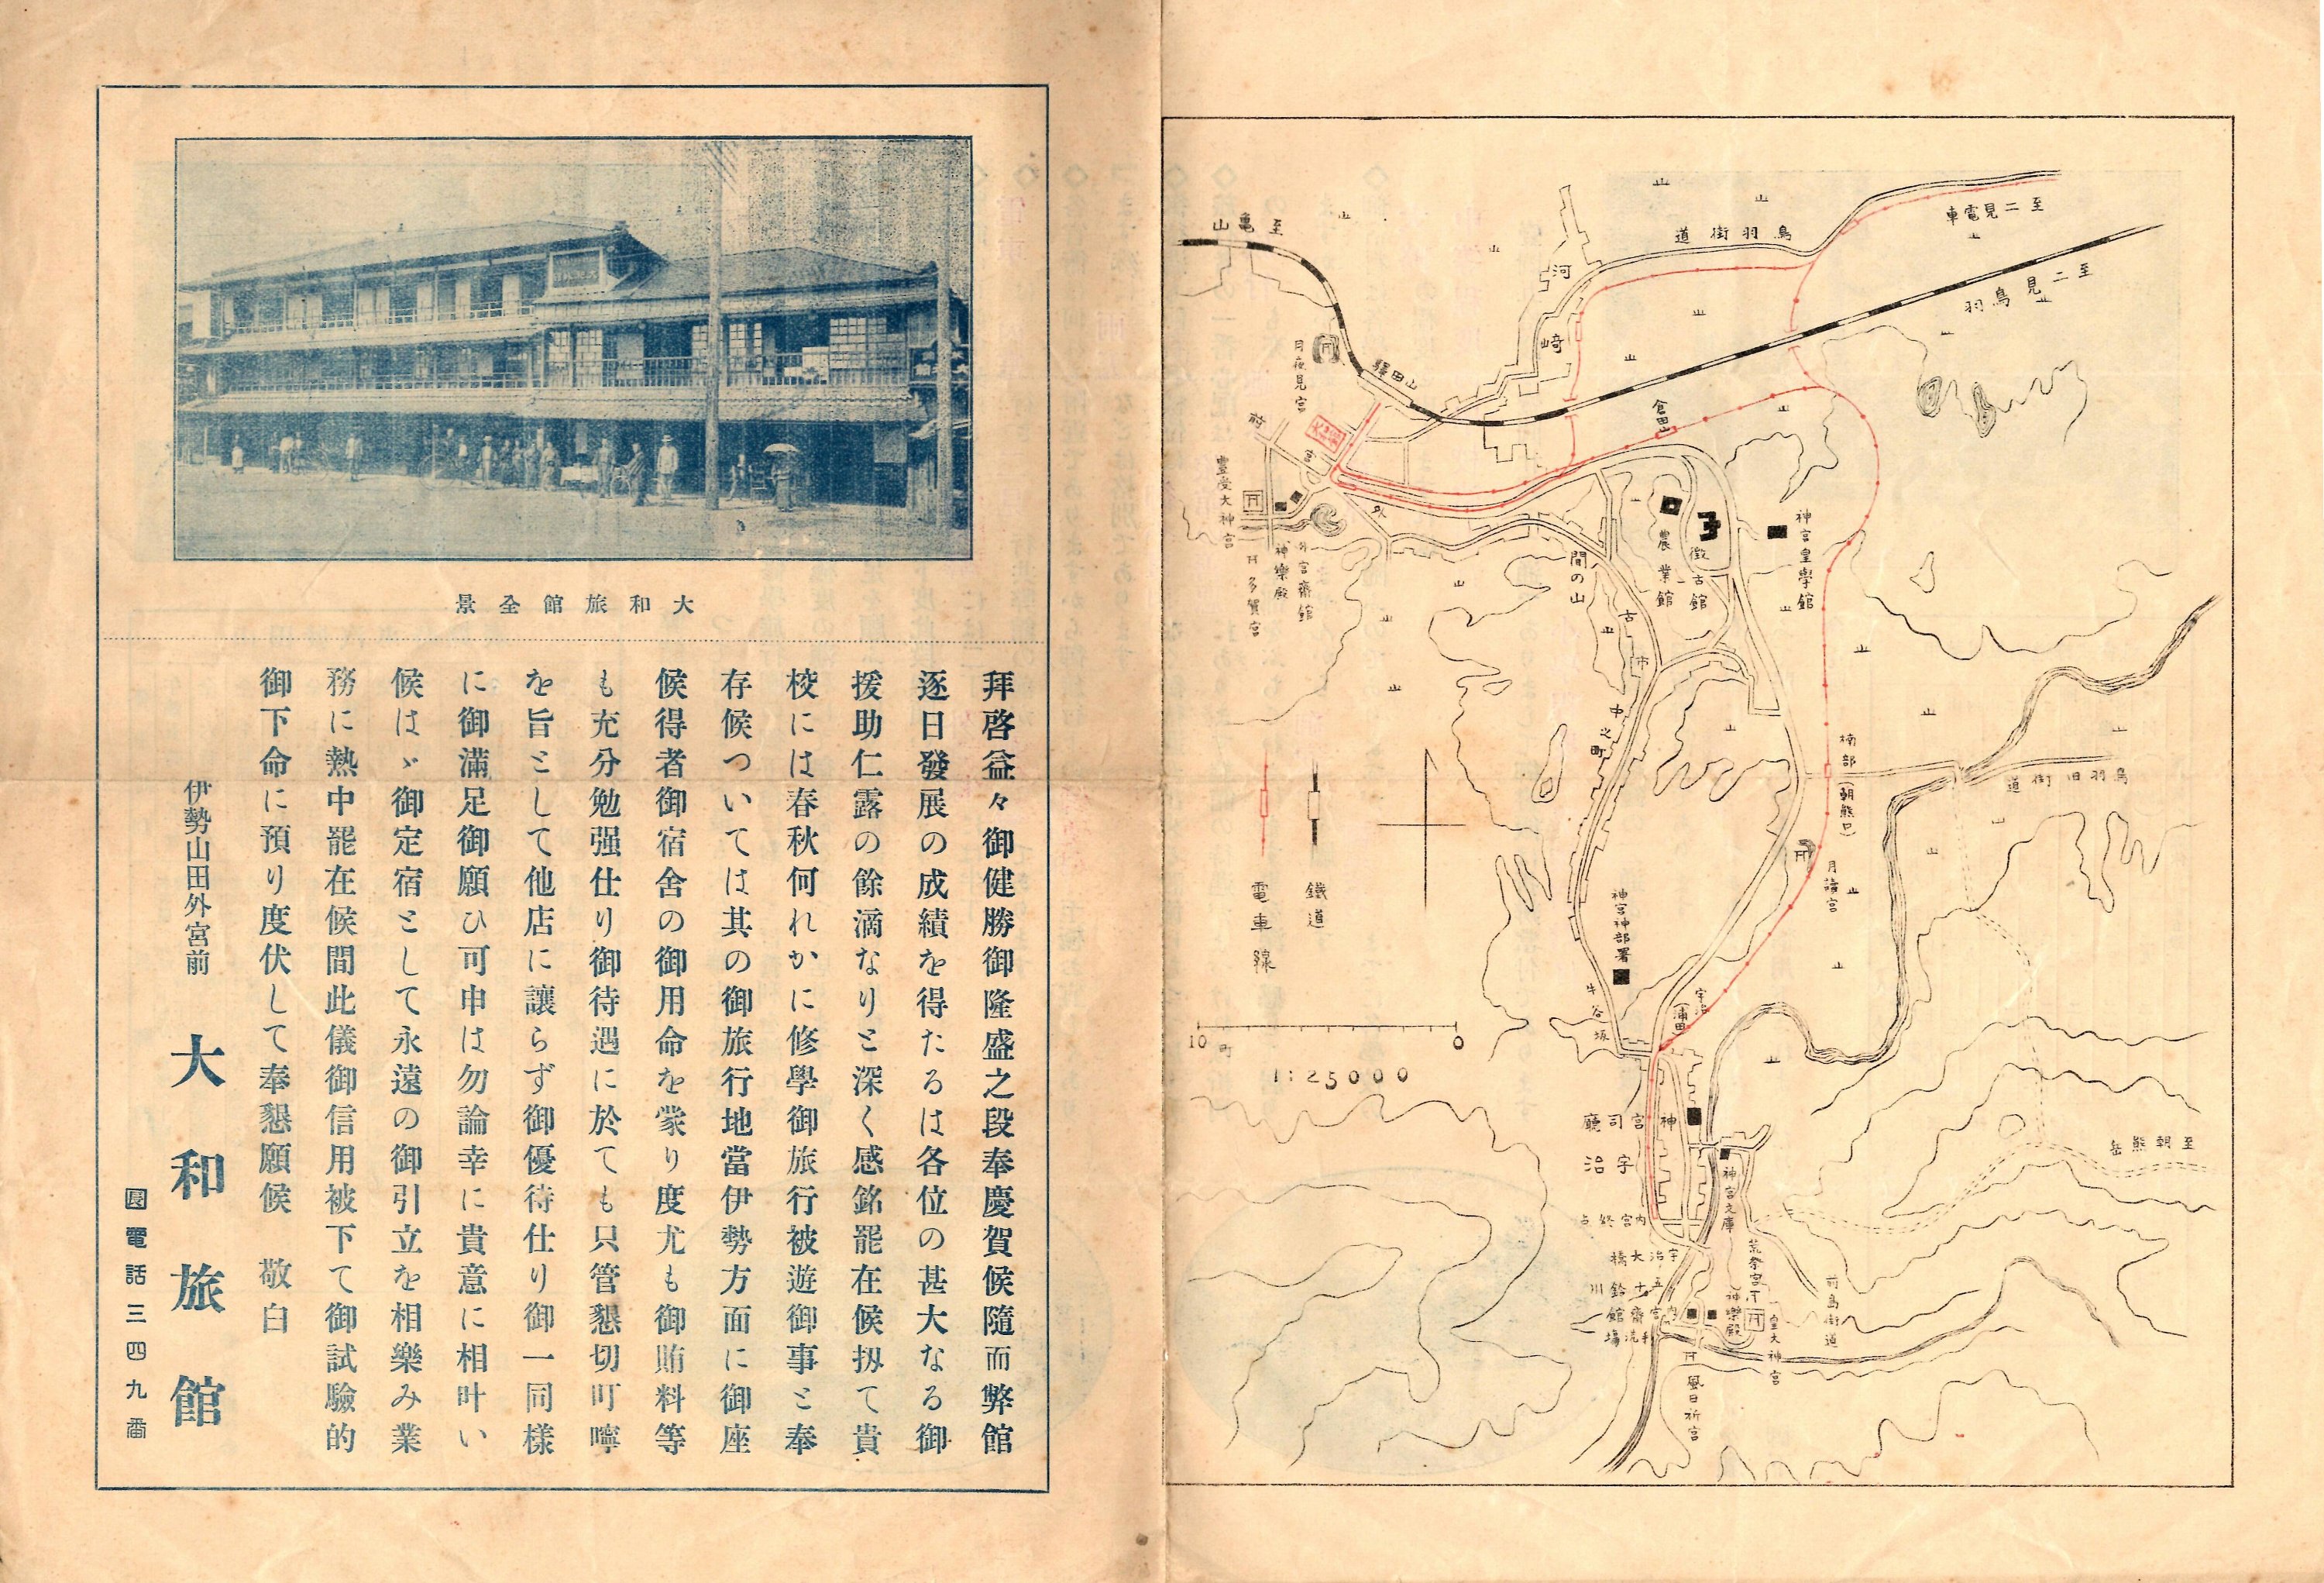 大和旅館全景
拜啓益々御健勝御隆盛之段奉慶賀候隨而弊館
逐日發展の成績を得たるは各位の甚大なる御
援助仁露の餘滴なりと深く感銘罷在候扨て貴
校には春秋何れかに修學御旅行被遊御事と奉
存候ついては其の御旅行地當伊勢方面に御座
候得者御宿舍の御用命を蒙り度尤も御賄料等
も充分勉强仕り御待遇に於ても只管懇切町嚀
を旨として他店に讓らず御優待仕り御一同樣
に御滿足御願ひ可申は勿論幸に貴意に相叶い
候はゞ御定宿として永遠の御引立を相樂み業
務に熱中罷在候間此儀御信用被下て御試驗的
御下命に預り度伏して奉懇願候　敬白
伊勢山田外宮前
大和旅館
電話三四九番
至亀山
至二見電車
鳥羽街道
至二見鳥羽
河崎
月夜見宮
山田驛
倉田山
豊受大神宮
神樂殿
外宮齋館
多賀宮
間の山
農業館
徴古館
神宮皇學館
古市
中之町
楠部
(朝熊口)
鳥羽旧街道
月讀宮
鐵道
電車線
神宮神部署
牛谷坂
宇治
(浦田)
10町
0
1:25000
神宮司廳
宇治
至朝熊岳
神宮文庫
内宮終点
宇治大橋
荒祭宮
五十鈴川
内宮齋館
神樂殿
皇大神宮
風日祈宮